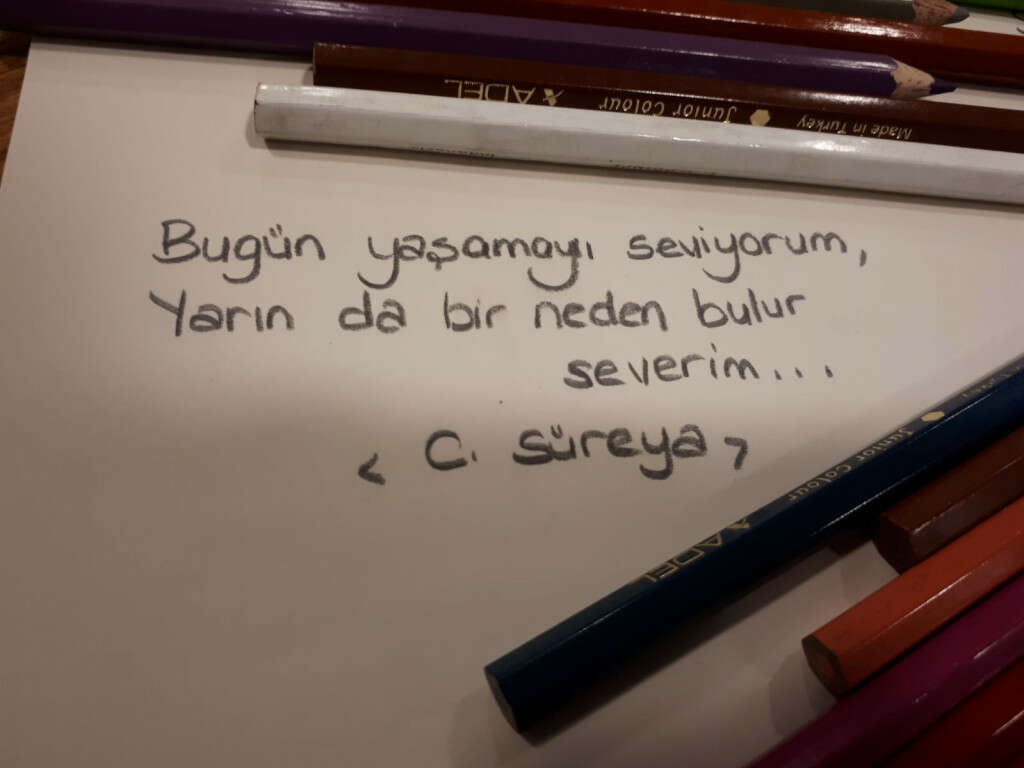 ADEL Junior Colour Made in Turkey
Bugün yaşamayı seviyorum,
Yarın da bir neden bulur
severim...
< C. Süreya >
ADEL Junior Colour